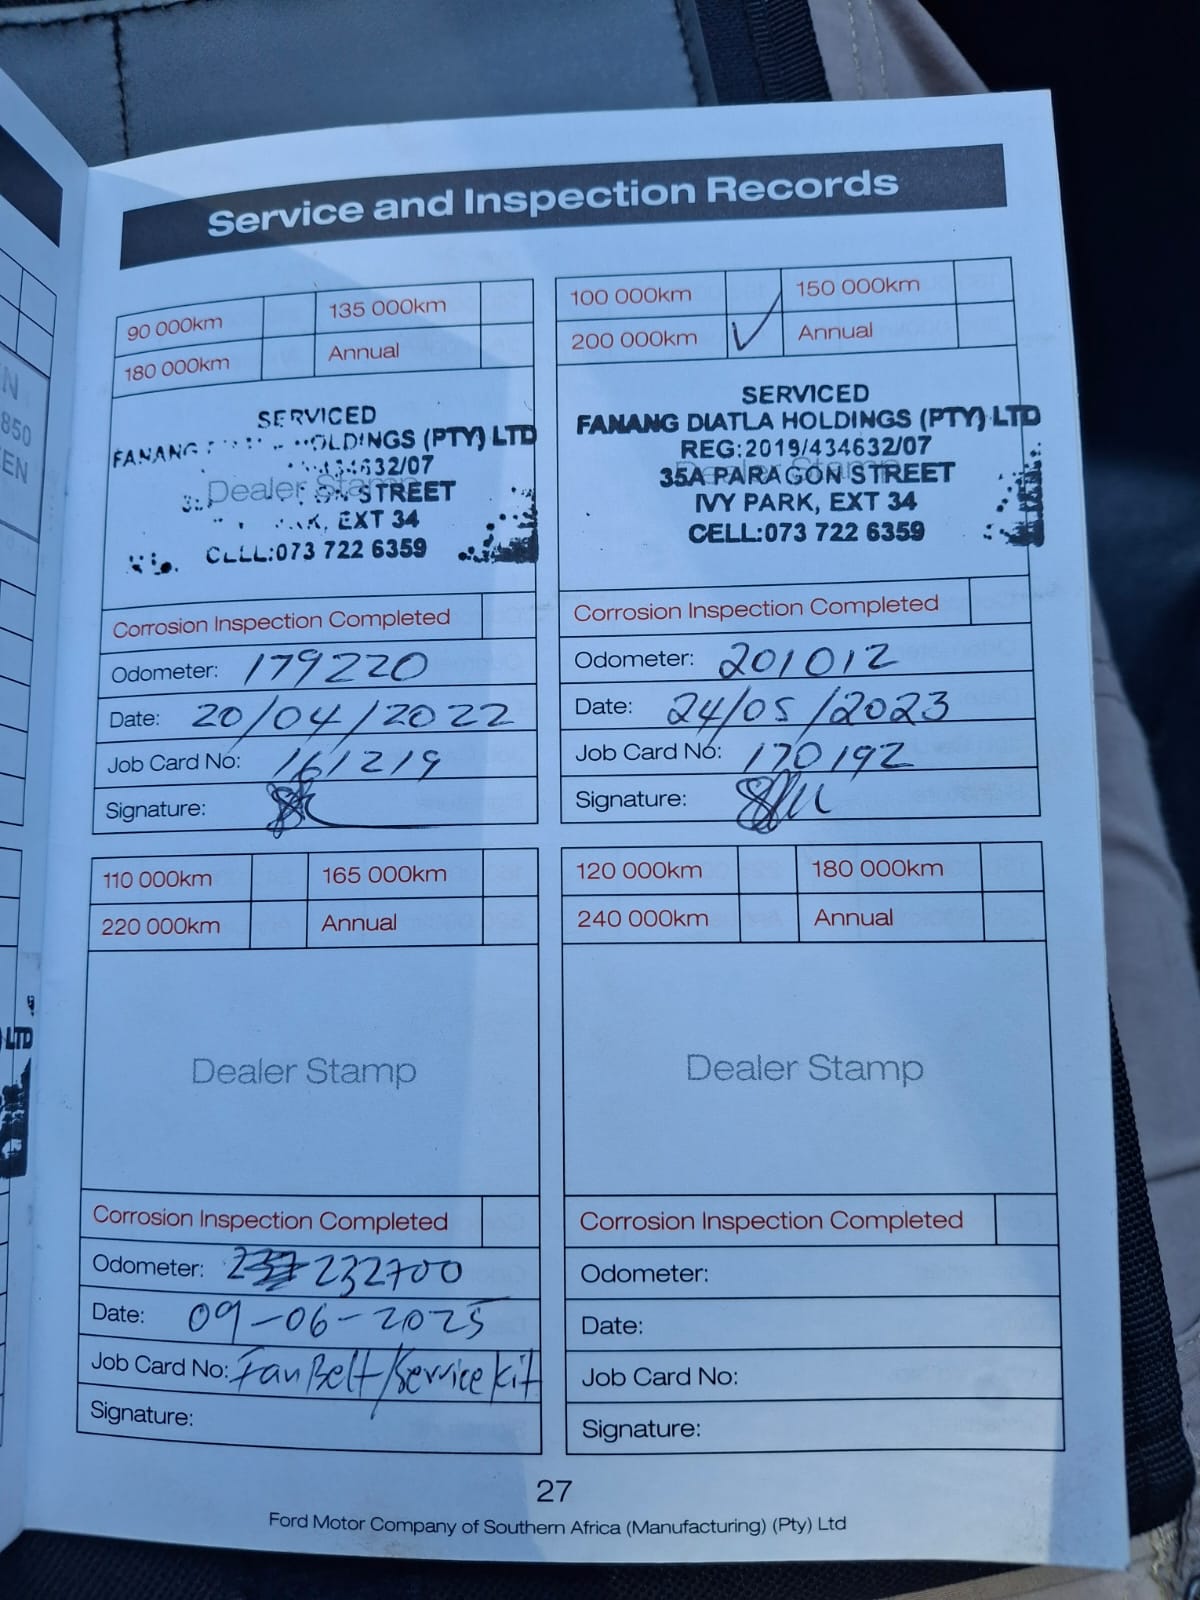 Service and Inspection Records
90 000km 135 000km
180 000km Annual
SERVICED
FANANG HOLDINGS (PTY) LTD
434632/07
Dealer Stamp
STREET
EXT 34
CELL:073 722 6359
Corrosion Inspection Completed
Odometer: 179220
Date: 20/04/2022
Job Card No: 161219
Signature:
100 000km 150 000km
200 000km Annual
SERVICED
FANANG DIATLA HOLDINGS (PTY) LTD
REG:2019/434632/07
Dealer Stamp
35A PARAGON STREET
IVY PARK, EXT 34
CELL:073 722 6359
Corrosion Inspection Completed
Odometer: 201012
Date: 24/05/2023
Job Card No: 170192
Signature:
110 000km 165 000km
220 000km Annual
Dealer Stamp
Corrosion Inspection Completed
Odometer: 232700
Date: 09-06-2025
Job Card No: Fan Belt/Service kit
Signature:
120 000km 180 000km
240 000km Annual
Dealer Stamp
Corrosion Inspection Completed
Odometer:
Date:
Job Card No:
Signature:
27
Ford Motor Company of Southern Africa (Manufacturing) (Pty) Ltd
850
EN
LTD